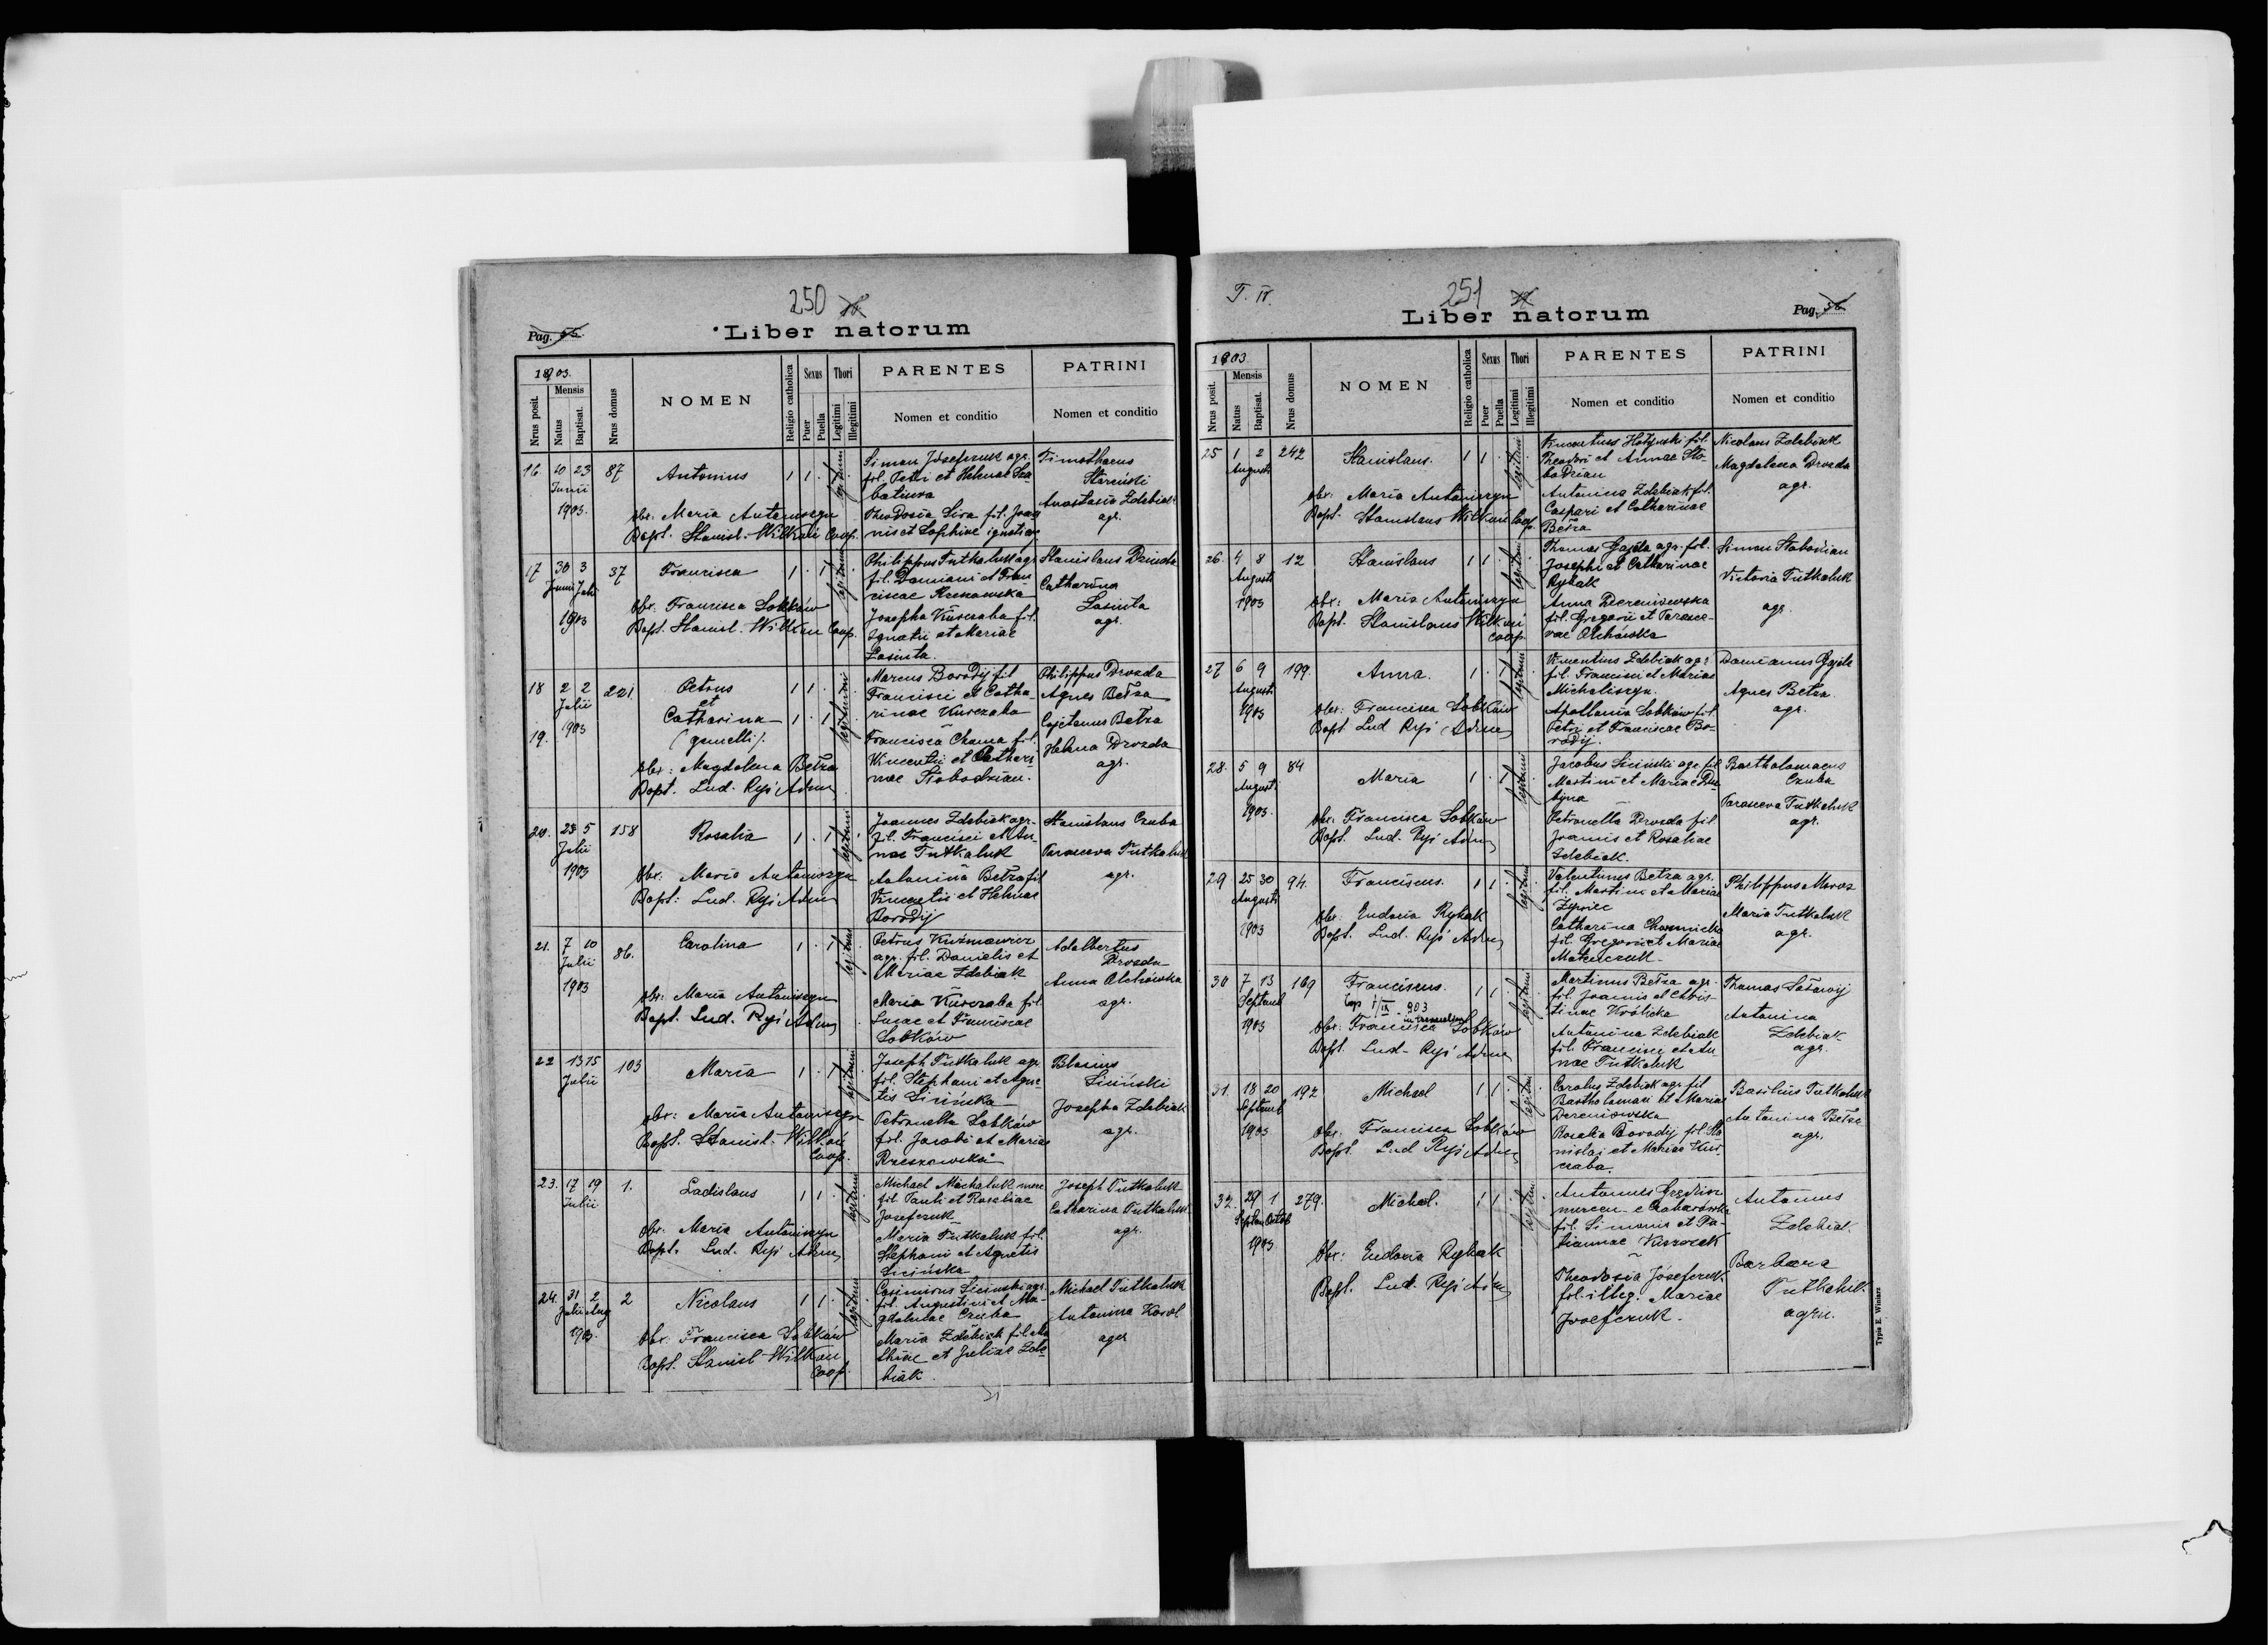 250
Pag.
Liber natorum
1903.
Nrus posit.
Mensis
Natus
Baptisat.
Nrus domus
NOMEN
Religio catholica
Sexus
Puer
Puella
Thori
Legitimi
Illegitimi
PARENTES
Nomen et conditio
PATRINI
Nomen et conditio
16. 10 23 87 Antonius 1 1 legitimi
Junii
1903.
obx. Maria Antoniszyn
Bapt. Stanisl. Wilkoń Coop.
Simon Josefczuk agr.
fil. Petri et Helenae
Theodosia Siva fil. Joan
nis et Sophiae
Timotheus
Anastasia Zdebiak
agr.
17 30 3 37 Francisca 1 1 legitimi
Junii Julii
1903
Obx. Francisca Sobków
Bapt. Stanisl. Wilkoń Coop.
Philippus Tutkaluk agr
fil. Damiani et Fran
ciscae
Josepha Kurczaba fil.
Ignatii et Mariae
Stanislaus
Catharina
agr.
18 2 2 221. Petrus 1 1 legitimi
Julii
et
Catharina 1 1
1903
19. (gemelli).
obx: Magdalena Betza
Bapt. Lud. Ryś Adm
Marcus Borodij fil
Francisci et Catha-
rinae Kurczaba
Francisca Chama fil.
Vincentii et Cathari
nae Słobodzian.
Philippus Drozda
Agnes Betza
Cajetanus Betza
Helena Drozda
agr.
20. 23 5 158 Rosalia 1 1 legitimi
Julii
1903
Obx. Maria Antoniszyn
Bapt: Lud. Ryś Adm
Joannes Zdebiak agr.
fil. Francisci et An-
nae Tutkaluk
Antonina Betza fil
Vincentii et Helenae
Borodij
Stanislaus Czuba
Parasceva Tutkaluk
agr.
21. 7 10 86. Carolina 1 1 legitimi
Julii
1903
obx: Maria Antoniszyn
Bapt. Lud. Ryś Adm
Petrus Kuźmowicz
agr. fil. Danielis et
Mariae Zdebiak
Maria Kurczaba fil
Lucae et Franciscae
Sobków
Adalbertus
Drozda
Anna Olchówka
agr.
22 13 15 103 Maria 1 1 legitimi
Julii
obx: Maria Antoniszyn
Bapt. Stanisl. Wilkoń
Coop.
Joseph Tutkaluk agr
fil. Stephani et Agne
tis Sicińska
Petronella Sobków
fil. Jacobi et Mariae
Rzeszowska
Blasius
Siciński
Josepha Zdebiak
agr.
23. 17 19 1. Ladislaus 1 1 legitimi
Julii
obx. Maria Antoniszyn
Bapt. Lud. Ryś Adm
Michael Michaluk merc
fil Pauli et Rosaliae
Josefczuk
Maria Tutkaluk fil.
Stephani et Agnetis
Sicińska
Joseph Tutkaluk
Catharina Tutkaluk
agr.
24. 31 2 2 Nicolaus 1 1 legitimi
Julii Aug
1903.
Obx. Francisca Sobków
Bapt. Stanisl Wilkoń
Coop.
Casimirus Siciński agr.
fil. Augustini et Ma-
gdalenae Czuba
Maria Zdebiak fil. Ma
thiae et Juliae Zde
biak
Michael Tutkaluk
Antonina Korol
agr
T. IV.
251
Pag. 56
Liber natorum
1903
Nrus posit.
Mensis
Natus
Baptisat.
Nrus domus
NOMEN
Religio catholica
Sexus
Puer
Puella
Thori
Legitimi
Illegitimi
PARENTES
Nomen et conditio
PATRINI
Nomen et conditio
25 1 2 242 Stanislaus. 1 1 legitimi
Augusti
obx. Maria Antoniszyn
Bapt. Stanislaus Wilkoń Coop.
Vincentius Hołyński fil.
Theodori et Annae Sło-
bodzian
Antonina Zdebiak fil.
Caspari et Catharinae
Betza
Nicolaus Zdebiak
Magdalena Drozda
agr.
26. 4 8 12 Stanislaus 1 1 legitimi
Augusti
1903
obx: Maria Antoniszyn
Bapt. Stanislaus Wilkoń
Coop
Thomas Gajda agr. fil.
Josephi et Catharinae
Rybak
Anna Dereniowska
fil. Gregorii et Parasce-
vae Olchówka
Simon Słobodzian
Victoria Tutkaluk
agr.
27 6 9 199. Anna. 1 1 legitimi
Augusti
1903
obx: Francisca Sobków
Bapt. Lud Ryś Adm
Vincentius Zdebiak agr
fil. Francisci et Mariae
Michaliszyn.
Apollonia Sobków fil.
Petri et Franciscae Bo-
rodij.
Damianus Gajda
Agnes Betza.
agr.
28. 5 9 84 Maria 1 1 legitimi
Augusti
1903.
obx. Francisca Sobków
Bapt. Lud. Ryś Adm
Jacobus Siciński agr. fil
Martini et Mariae
Petronella Drozda fil
Joannis et Rosaliae
Zdebiak.
Bartholomaeus
Czuba
Parasceva Tutkaluk
agr.
29 25 30 94. Franciscus. 1 1 legitimi
Augusti
1903
obx. Eudoxia Rybak
Bapt. Lud. Ryś Adm
Valentinus Betza agr.
fil. Martini et Mariae
Żywiec
Catharina
fil. Gregorii et Mariae
Philippus Moroz
Maria Tutkaluk
agr.
30 7 13 169 Franciscus. 1 1 legitimi
Septemb
1903
obx. Francisca Sobków
Bapt. Lud. Ryś Adm
Martinus Betza agr.
fil. Joannis et Chris-
tinae Królicka
Antonina Zdebiak
fil. Francisci et An
nae Tutkaluk
Thomas
Antonina
Zdebiak
agr.
31. 18 20 192 Michael 1 1 legitimi
Septemb
1903
obx. Francisca Sobków
Bapt. Lud Ryś Adm
Carolus Zdebiak agr fil
Bartholomaei et Mariae
Dereniowska
Rosalia Borodij fil. Sta
nislai et Mariae Kur
czaba.
Basilius Tutkaluk
Antonina Betza
agr.
32. 29 1 279. Michael. 1 1 legitimi
Septem Octob
1903
Obx: Eudoxia Rybak
Bapt. Lud. Ryś Adm
Antonius
fil. Simonis et Ta-
tiannae
Theodosia Józefczuk
fil. illeg. Mariae
Josefczuk.
Antonius
Zdebiak.
Barbara
Tutkaluk.
agr.
Typis E. Winiarz